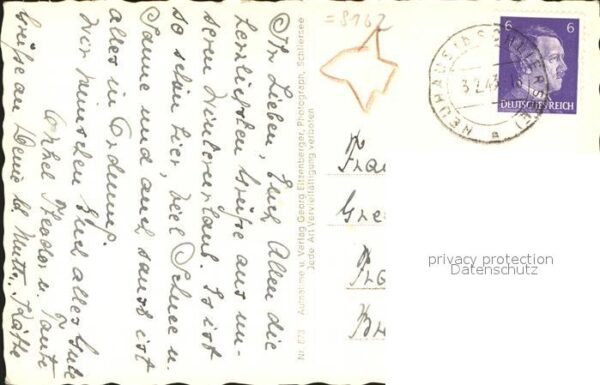 Ihr Lieben, Euch Allen die
herzlichsten Grüße aus un-
serem Winterurlaub. Es ist
so schön hier, viel Schnee u.
Sonne und auch sonst ist
alles in Ordnung.
Wir wünschen Euch alles Gute
Onkel Theodor u. Tante
Grüße an Mutti, Käthe
Nr. 673 Aufnahme u. Verlag Georg Etzenberger, Photograph, Schliersee
Jede Art Vervielfältigung verboten
=8162
NEUHAUS (b SCHLIERSEE)
3.2.43
a
6 6
DEUTSCHES REICH
Frau
Gre
Bre
privacy protection
Datenschutz